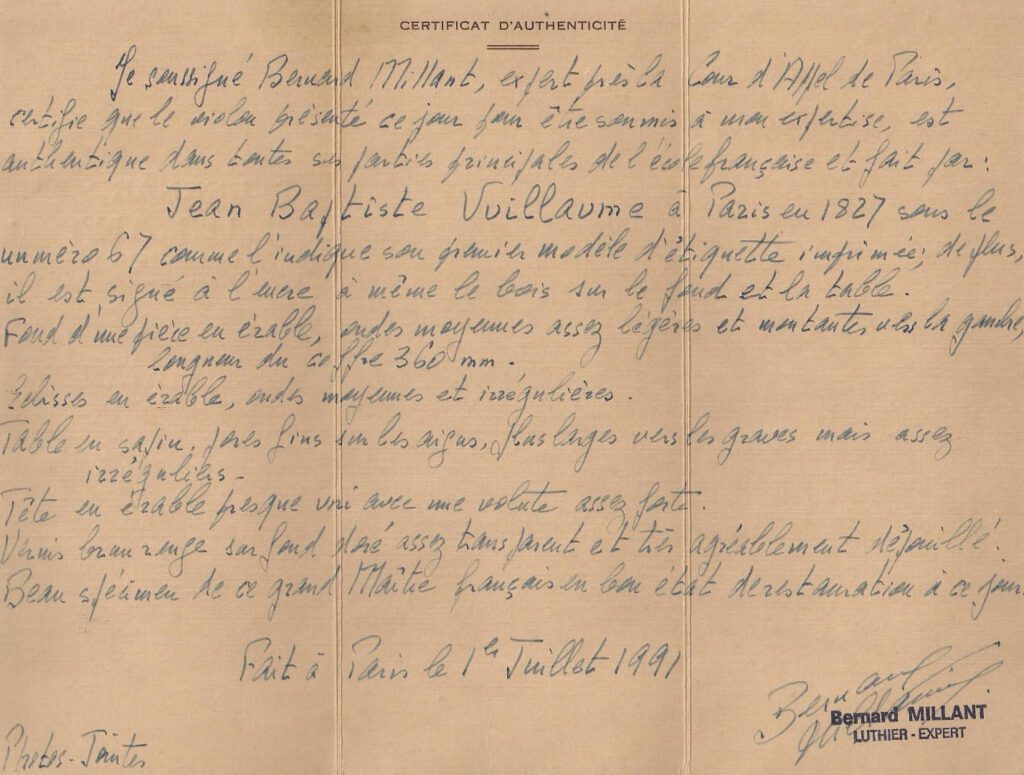 CERTIFICAT D'AUTHENTICITÉ
Je soussigné Bernard Millant, expert près la Cour d'Appel de Paris,
certifie que le violon présenté ce jour pour être soumis à mon expertise, est
authentique dans toutes ses parties principales de l'école française et fait par :
Jean Baptiste Vuillaume à Paris en 1827 sous le
numéro 67 comme l'indique son premier modèle d'étiquette imprimée; de plus,
il est signé à l'encre à même le bois sur le fond et la table.
Fond d'une pièce en érable, ondes moyennes assez légères et montantes vers la gauche,
longueur du coffre 360 mm.
Eclisses en érable, ondes moyennes et irrégulières.
Table en sapin, pores fins sur les aigus, plus larges vers les graves mais assez
irréguliers -
Tête en érable presque uni avec une volute assez forte.
Vernis brun rouge sur fond doré assez transparent et très agréablement dépouillé.
Beau spécimen de ce grand Maître français en bon état de restauration à ce jour.
Fait à Paris le 1er Juillet 1991
Bernard Millant
Bernard MILLANT
LUTHIER - EXPERT
Photos - Jointes